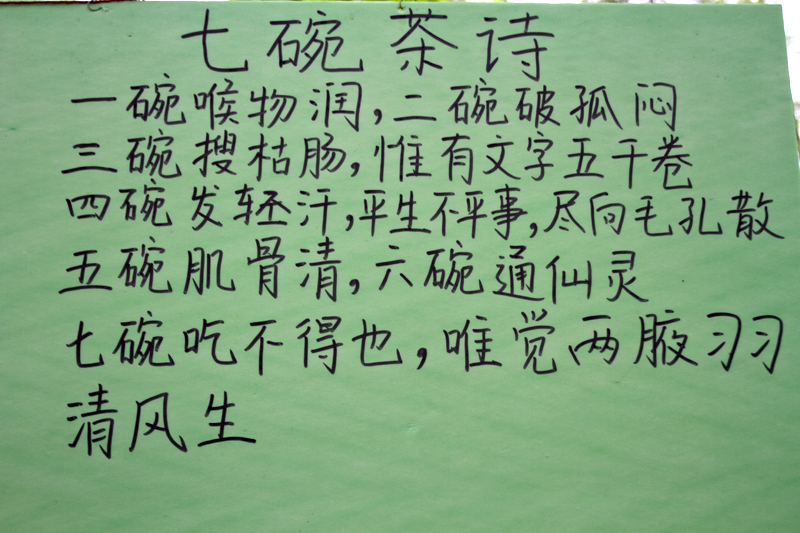 七碗茶诗
一碗喉物润,二碗破孤闷
三碗搜枯肠,惟有文字五千卷
四碗发轻汗,平生不平事,尽向毛孔散
五碗肌骨清,六碗通仙灵
七碗吃不得也,唯觉两腋习习
清风生